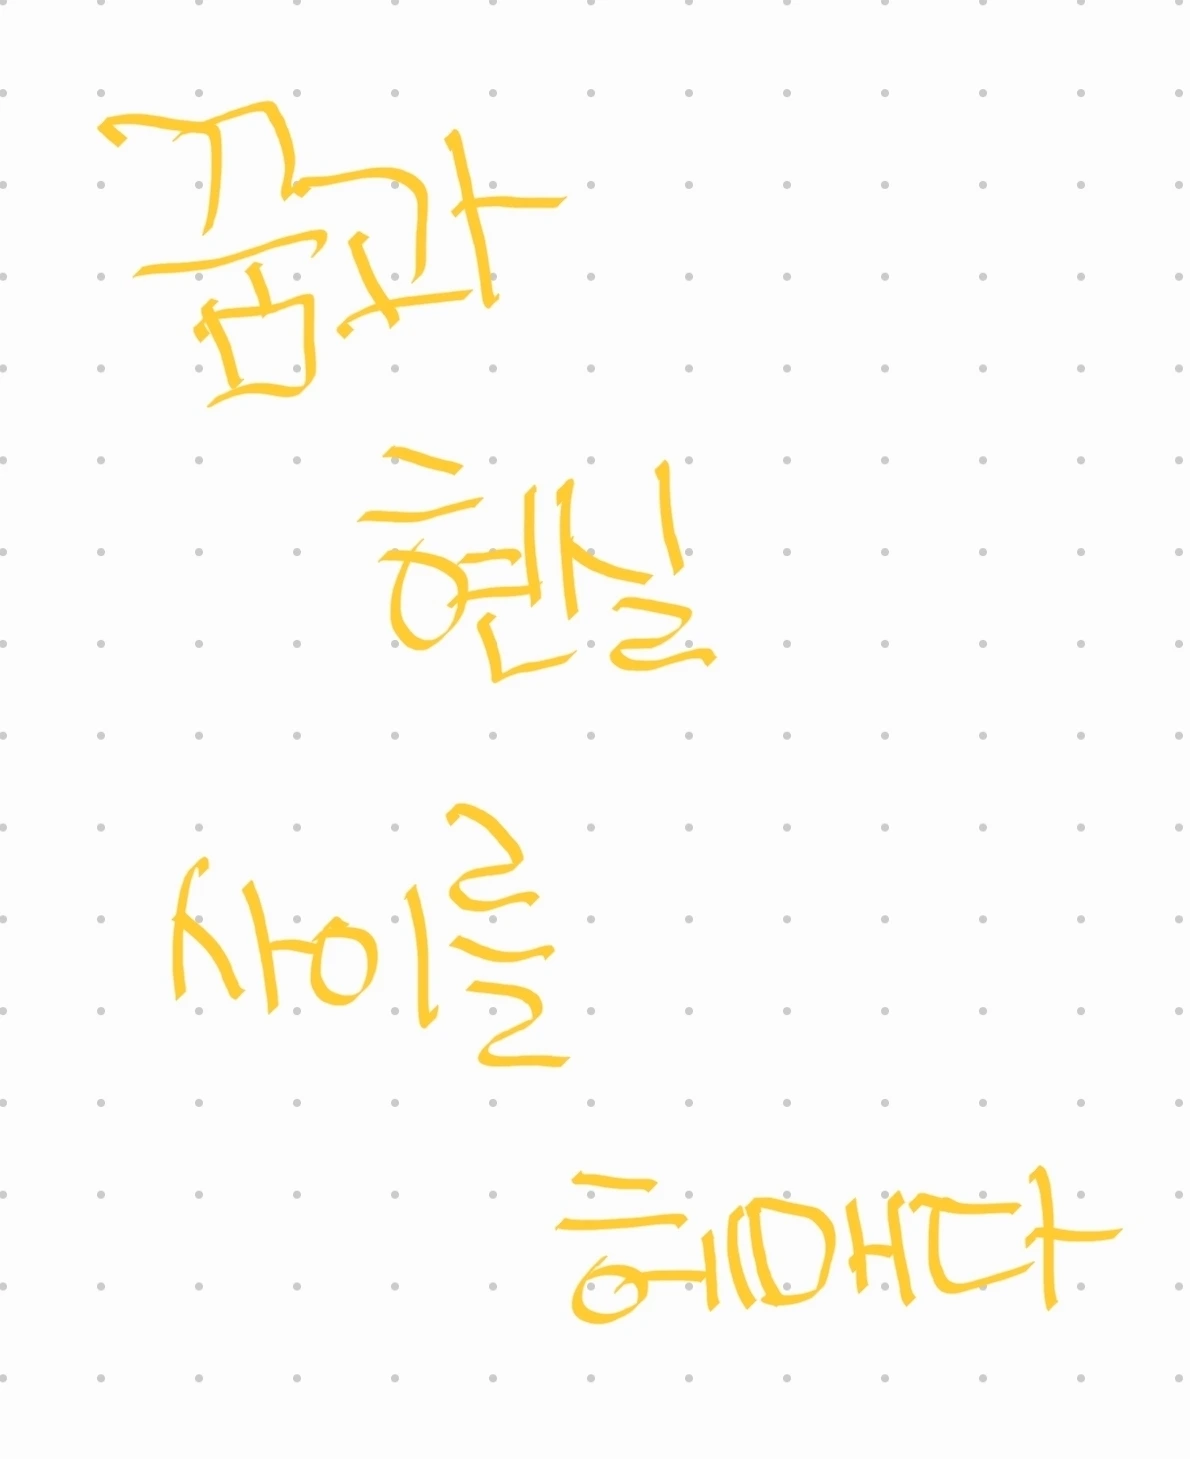 꿈과
현실
사이를
헤매다